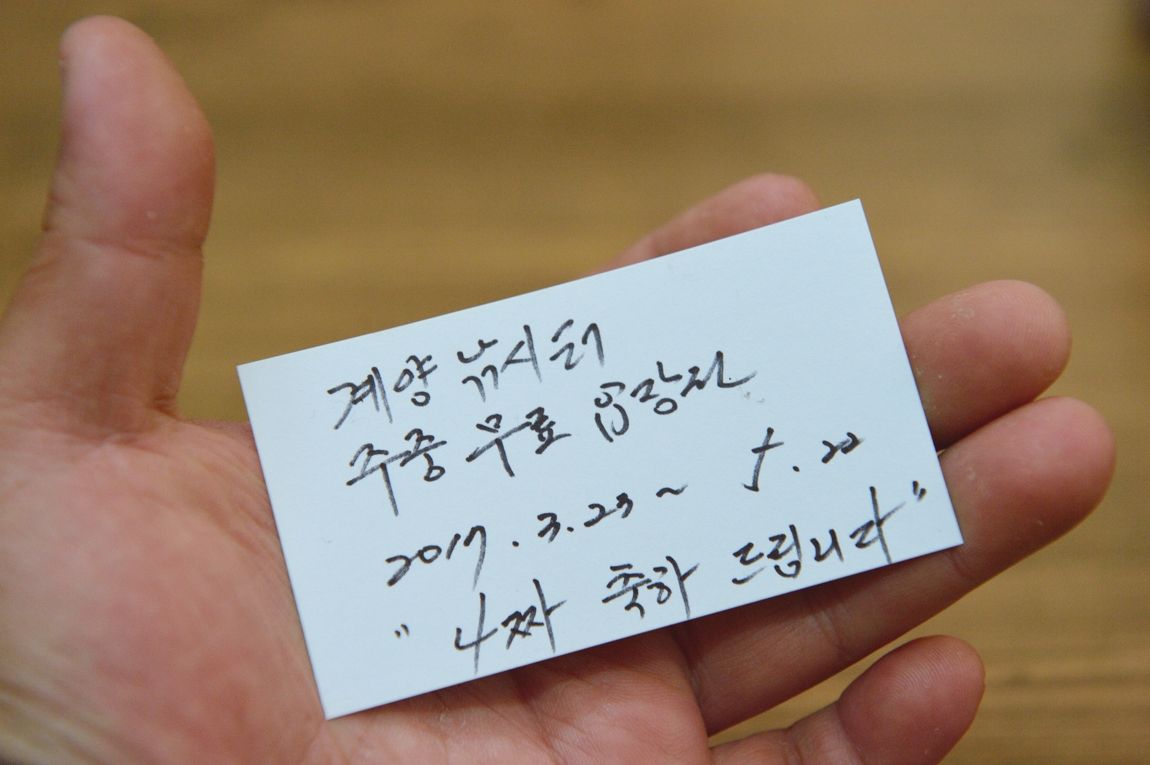 계양 낚시터
주중 무료 입장권
2017.3.23 ~ 5.20
"4짜 축하 드립니다"